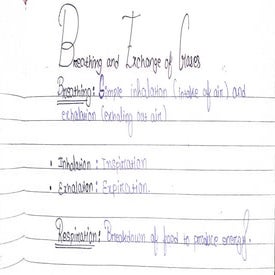 Breathing and Exchange of Gases
Breathing: Simple inhalation (intake of air) and
exhalation (exhaling out air)
• Inhalation : Inspiration
• Exhalation : Expiration.
Respiration: Breakdown of food to produce energy.